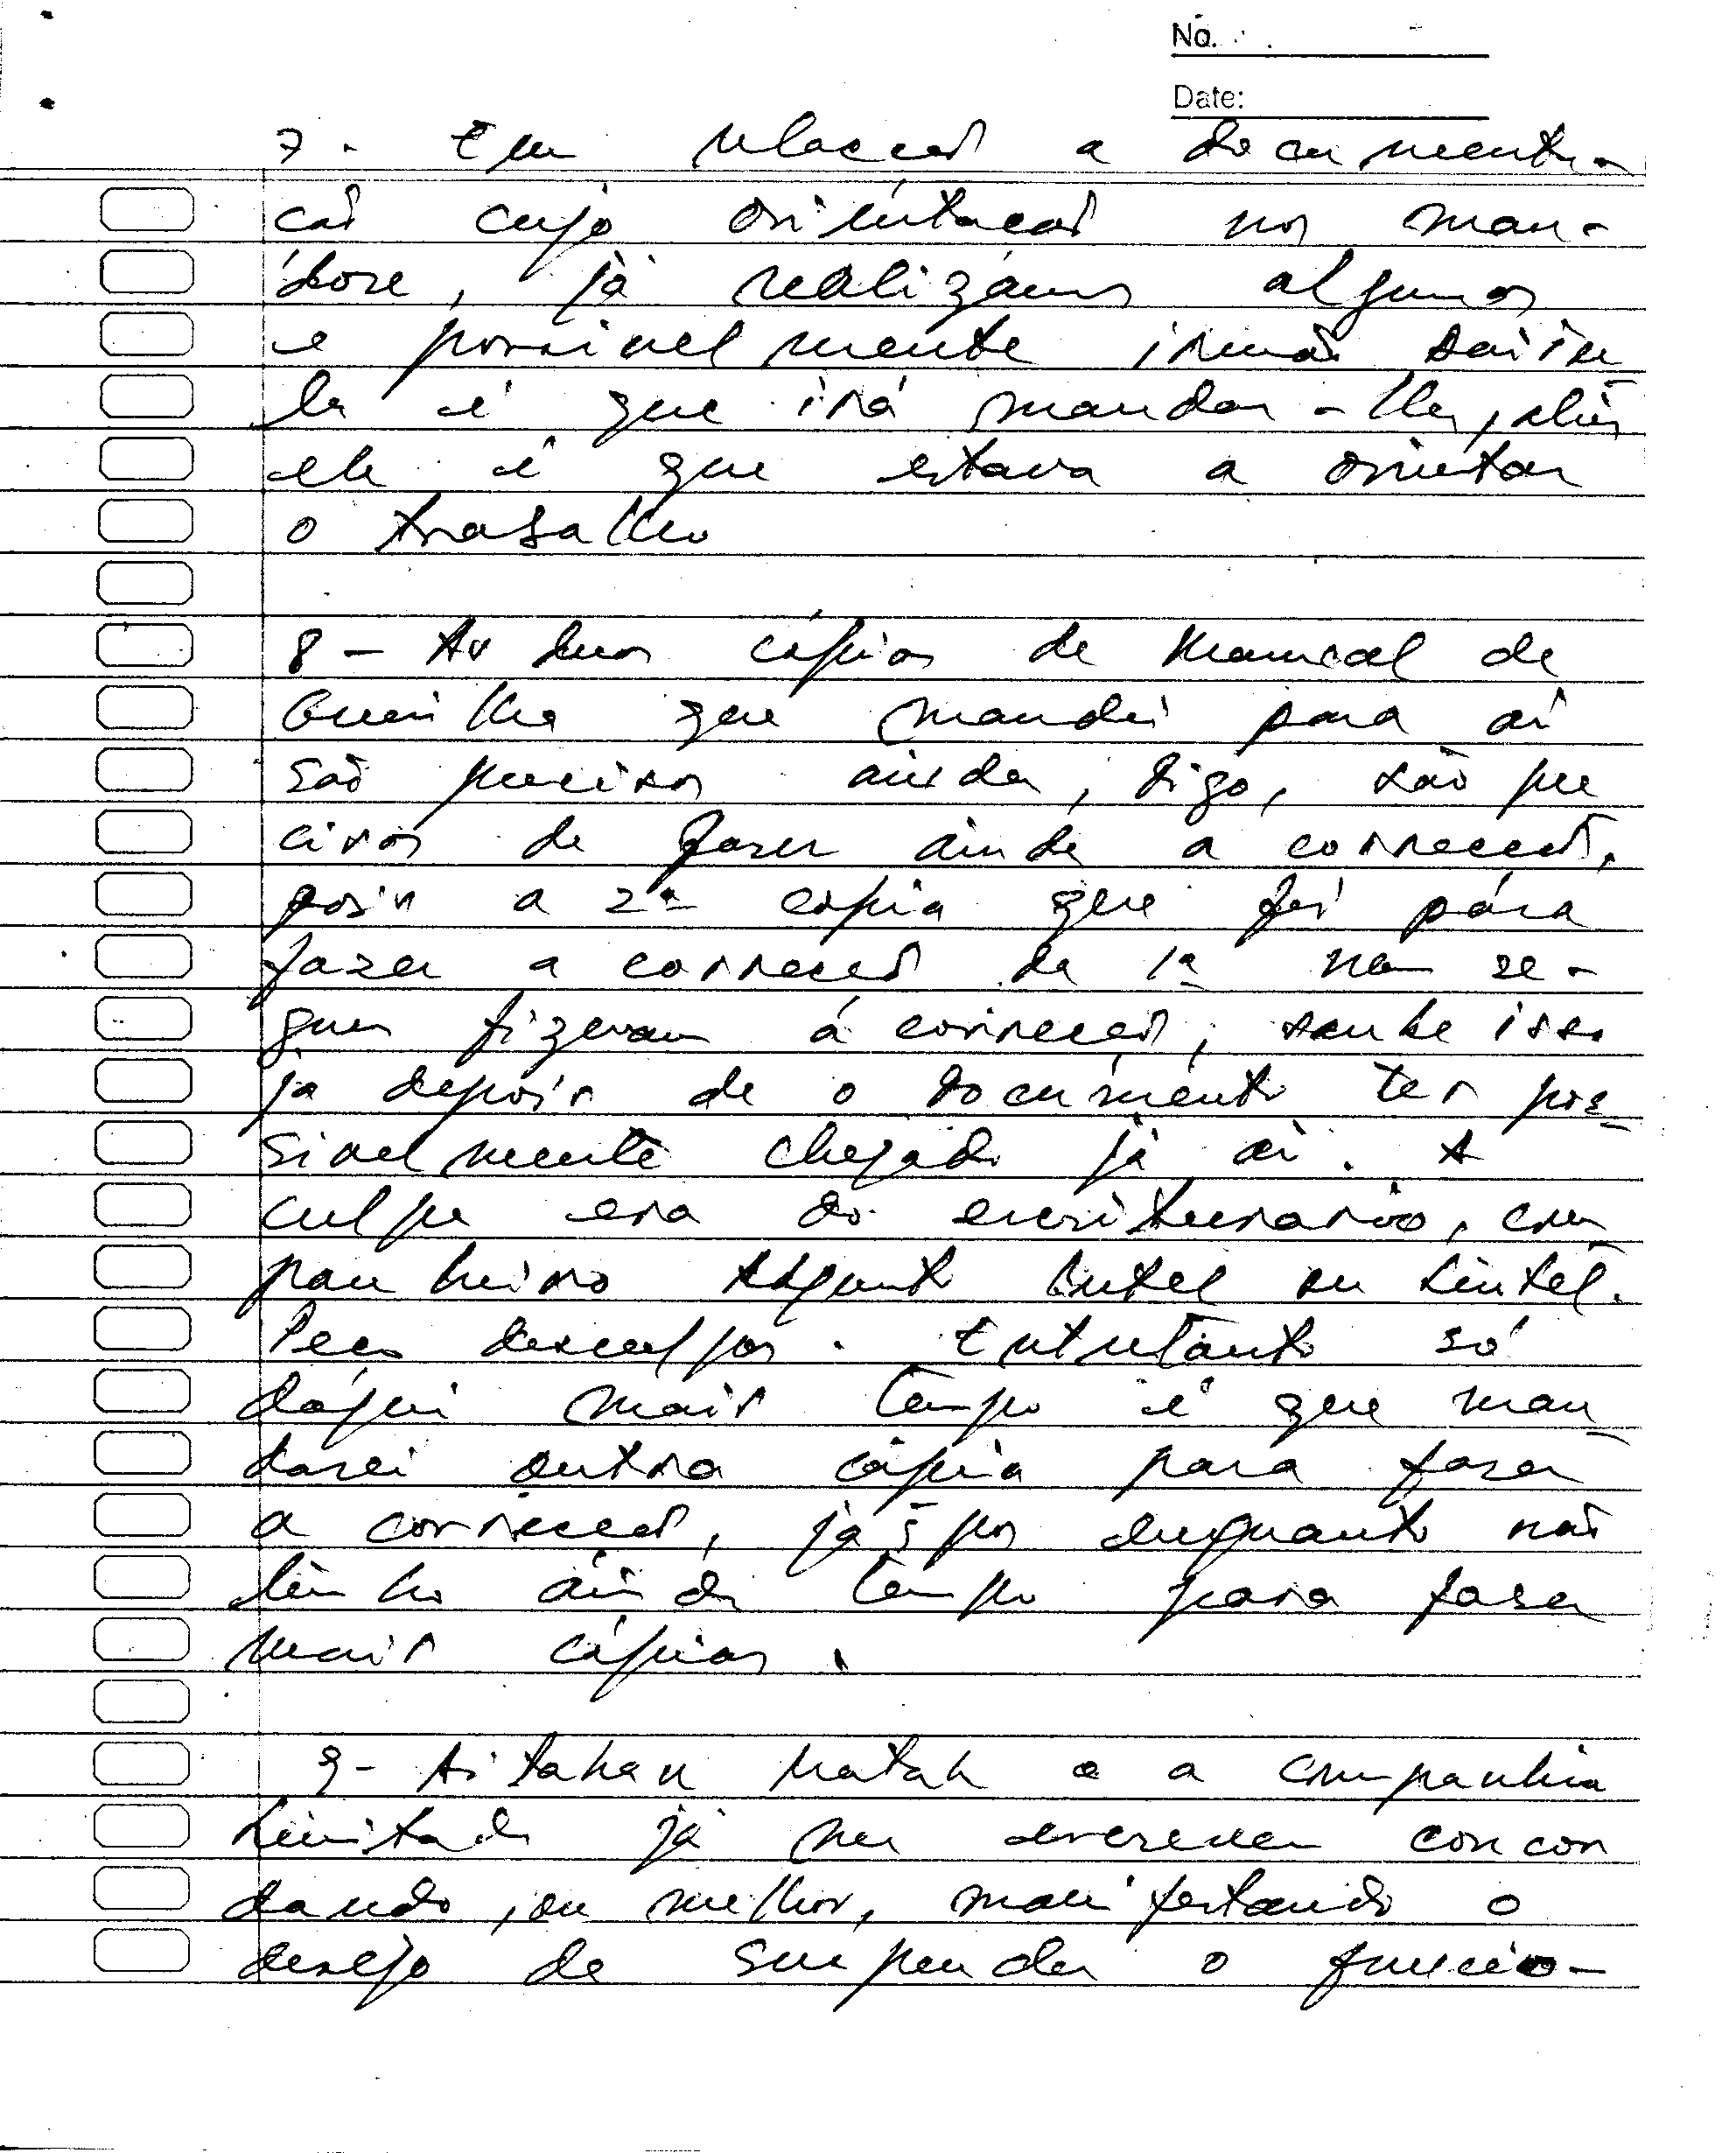 No.
Date:
7 - Em relacção a documenta-
cão cuja orientacão nos man-
dou, já realizámos algumas
e possivelmente irmão
é que irá mandar-lhe, aliás
ele é que estava a orientar
o trabalho
8 - As duas cópias de Manual de
Guerilha que mandei para aí
são precisos ainda, digo, são pre
cisos de fazer ainda a correccão,
pois a 2ª cópia que foi pára
fazer a correccão da 1ª nem se-
quer fizeram á correccão, soube isso
já depois de o documento ter pos-
sivelmente chegado já aí. A
culpa era do escriturário, com-
panheiro Adjunto Intel ou Lintel.
Peço desculpas. Entretanto só
dáqui mais tempo é que man-
darei outra cópia para fazer
a correccão, já q̄ por enquanto não
tenho ainda tempo para fazer
mais cópias.
9 - Aitahan Matak e a Companhia
Limitada já me escrevem concor
dando, ou melhor, manifestando o
desejo de suspender o funcio-